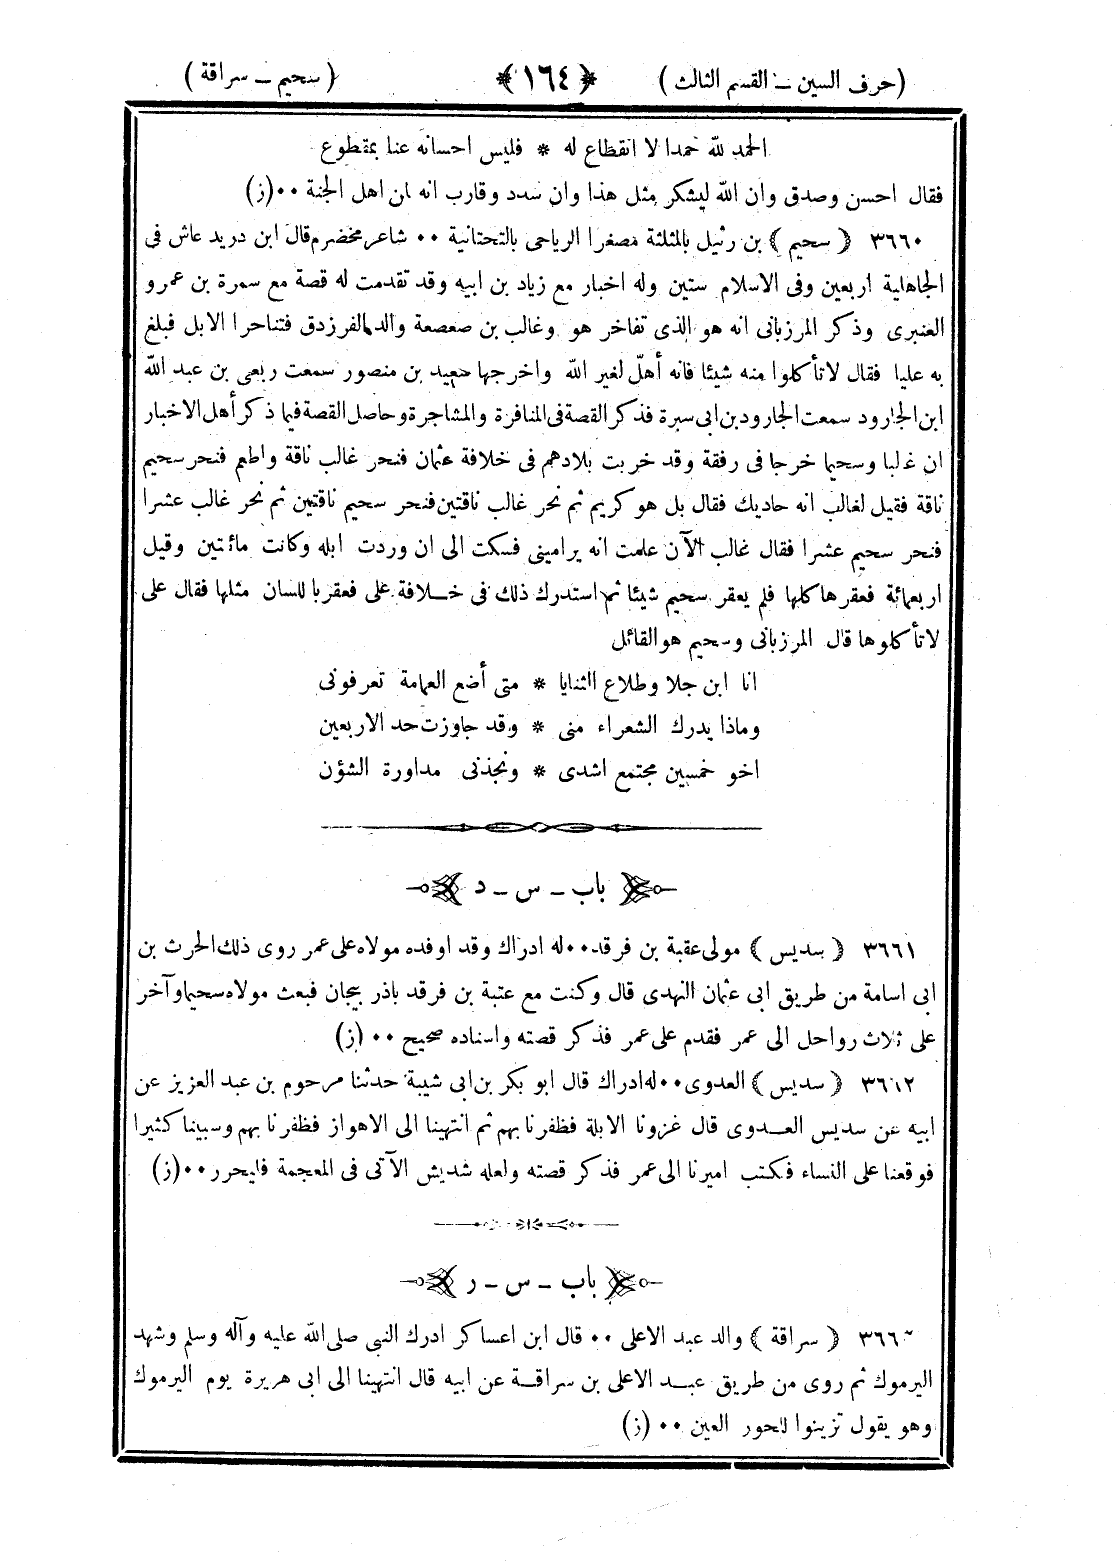 (حرف السين – القسم الثالث) ﴿١٦٤﴾ (سحيم – سراقة)
الحمد لله حمدا لا انقطاع له * فليس احسانه عنا بمقطوع
فقال احسن وصدق وان الله ليشكر مثل هذا وان سدد وقارب انه لمن اهل الجنة ٠٠ (ز)
٣٦٦٠ ﴿سحيم﴾ بن رثيل بالمثلثة مصغرا الرياحى بالتحتانية ٠٠ شاعر مخضرم قال ابن دريد عاش فى
الجاهلية اربعين وفى الاسلام ستين وله اخبار مع زياد بن ابيه وقد تقدمت له قصة مع سمرة بن عمرو
العنبرى وذكر المرزبانى انه هو الذى تفاخر هو وغالب بن صعصعة والد الفرزدق فتناحرا الابل فبلغ
به عليا فقال لا تأكلوا منه شيئا فانه أهلّ لغير الله واخرجها سعيد بن منصور سمعت ربعى بن عبد الله
ابن الجارود سمعت الجارود بن ابى سبرة فذكر القصة فى المنافرة والمشاجرة وحاصل القصة فيما ذكر أهل الاخبار
ان غالبا وسحيما خرجا فى رفقة وقد خربت بلادهم فى خلافة عثمان فنحر غالب ناقة واطعم فنحر سحيم
ناقة فقيل لغالب انه حاديك فقال بل هو كريم ثم نحر غالب ناقتين فنحر سحيم ناقتين ثم نحر غالب عشرا
فنحر سحيم عشرا فقال غالب الآن علمت انه يرامينى فسكت الى ان وردت ابله وكانت مائتين وقيل
اربعمائة فعقرها كلها فلم يعقر سحيم شيئا ثم استدرك ذلك فى خلافة على فعقر باللسان مثلها فقال على
لا تأكلوها قال المرزبانى وسحيم هو القائل
انا ابن جلا وطلاع الثنايا * متى أضع العمامة تعرفونى
وماذا يدرك الشعراء منى * وقد جاوزت حد الاربعين
اخو خمسين مجتمع اشدى * ونجذنى مداورة الشؤن
باب – س – د
٣٦٦١ ﴿سديس﴾ مولى عقبة بن فرقد ٠٠ له ادراك وقد اوفده مولاه على عمر روى ذلك الحرث بن
ابى اسامة من طريق ابى عثمان النهدى قال وكنت مع عتبة بن فرقد باذربيجان فبعث مولاه سحيما وآخر
على ثلاث رواحل الى عمر فقدم على عمر فذكر قصته واسناده صحيح ٠٠ (ز)
٣٦٦٢ ﴿سديس﴾ العدوى ٠٠ له ادراك قال ابو بكر بن ابى شيبة حدثنا مرحوم بن عبد العزيز عن
ابيه عن سديس العدوى قال غزونا الابلة فظفرنا بهم ثم انتهينا الى الاهواز فظفرنا بهم وسبينا كثيرا
فوقعنا على النساء فكتب اميرنا الى عمر فذكر قصته ولعله شديش الآتى فى المعجمة فليحرر ٠٠ (ز)
باب – س – ر
٣٦٦٣ ﴿سراقة﴾ والد عبد الاعلى ٠٠ قال ابن اعساكر ادرك النبى صلى الله عليه وآله وسلم وشهد
اليرموك ثم روى من طريق عبد الاعلى بن سراقة عن ابيه قال انتهينا الى ابى هريرة يوم اليرموك
وهو يقول تزينوا للحور العين ٠٠ (ز)